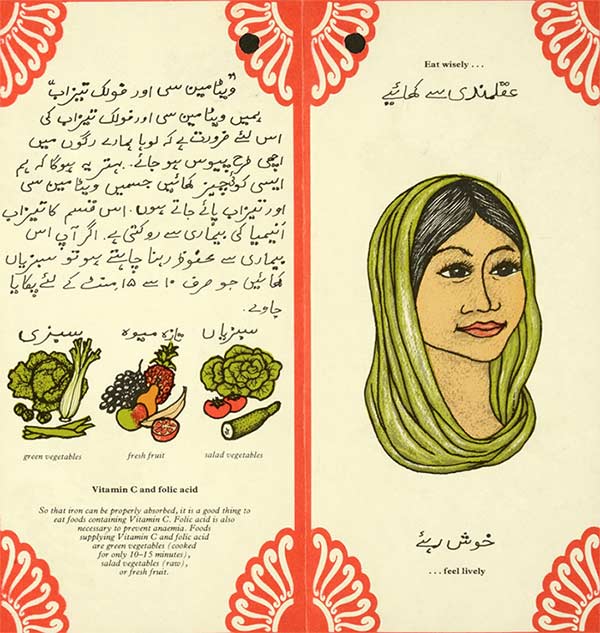 "ویٹامین سی اور فولک تیزاب"
ہمیں ویٹامین سی اور فولک تیزاب کی
اس لئے ضرورت ہے کہ لوہا ہمارے رگوں میں
اچھی طرح پیوس ہو جائے۔ بہتر یہ ہوگا کہ ہم
ایسی کوئی چیز کھائیں جسمیں ویٹامین سی
اور تیزاب پائے جاتے ہوں۔ اس قسم کا تیزاب
انیمیا کی بیماری سے روکتی ہے۔ اگر آپ اس
بیماری سے محفوظ رہنا چاہتے ہو تو سبزیاں
کھائیں جو صرف ۱۰ سے ۱۵ منٹ کے لئے پکایا
جاوے۔
سبزی تازہ میوہ سبزیاں
green vegetables fresh fruit salad vegetables
Vitamin C and folic acid
So that iron can be properly absorbed, it is a good thing to
eat foods containing Vitamin C. Folic acid is also
necessary to prevent anaemia. Foods
supplying Vitamin C and folic acid
are green vegetables (cooked
for only 10–15 minutes),
salad vegetables (raw),
or fresh fruit.
Eat wisely . . .
عقلمندی سے کھائیے
خوش رہئے
. . . feel lively